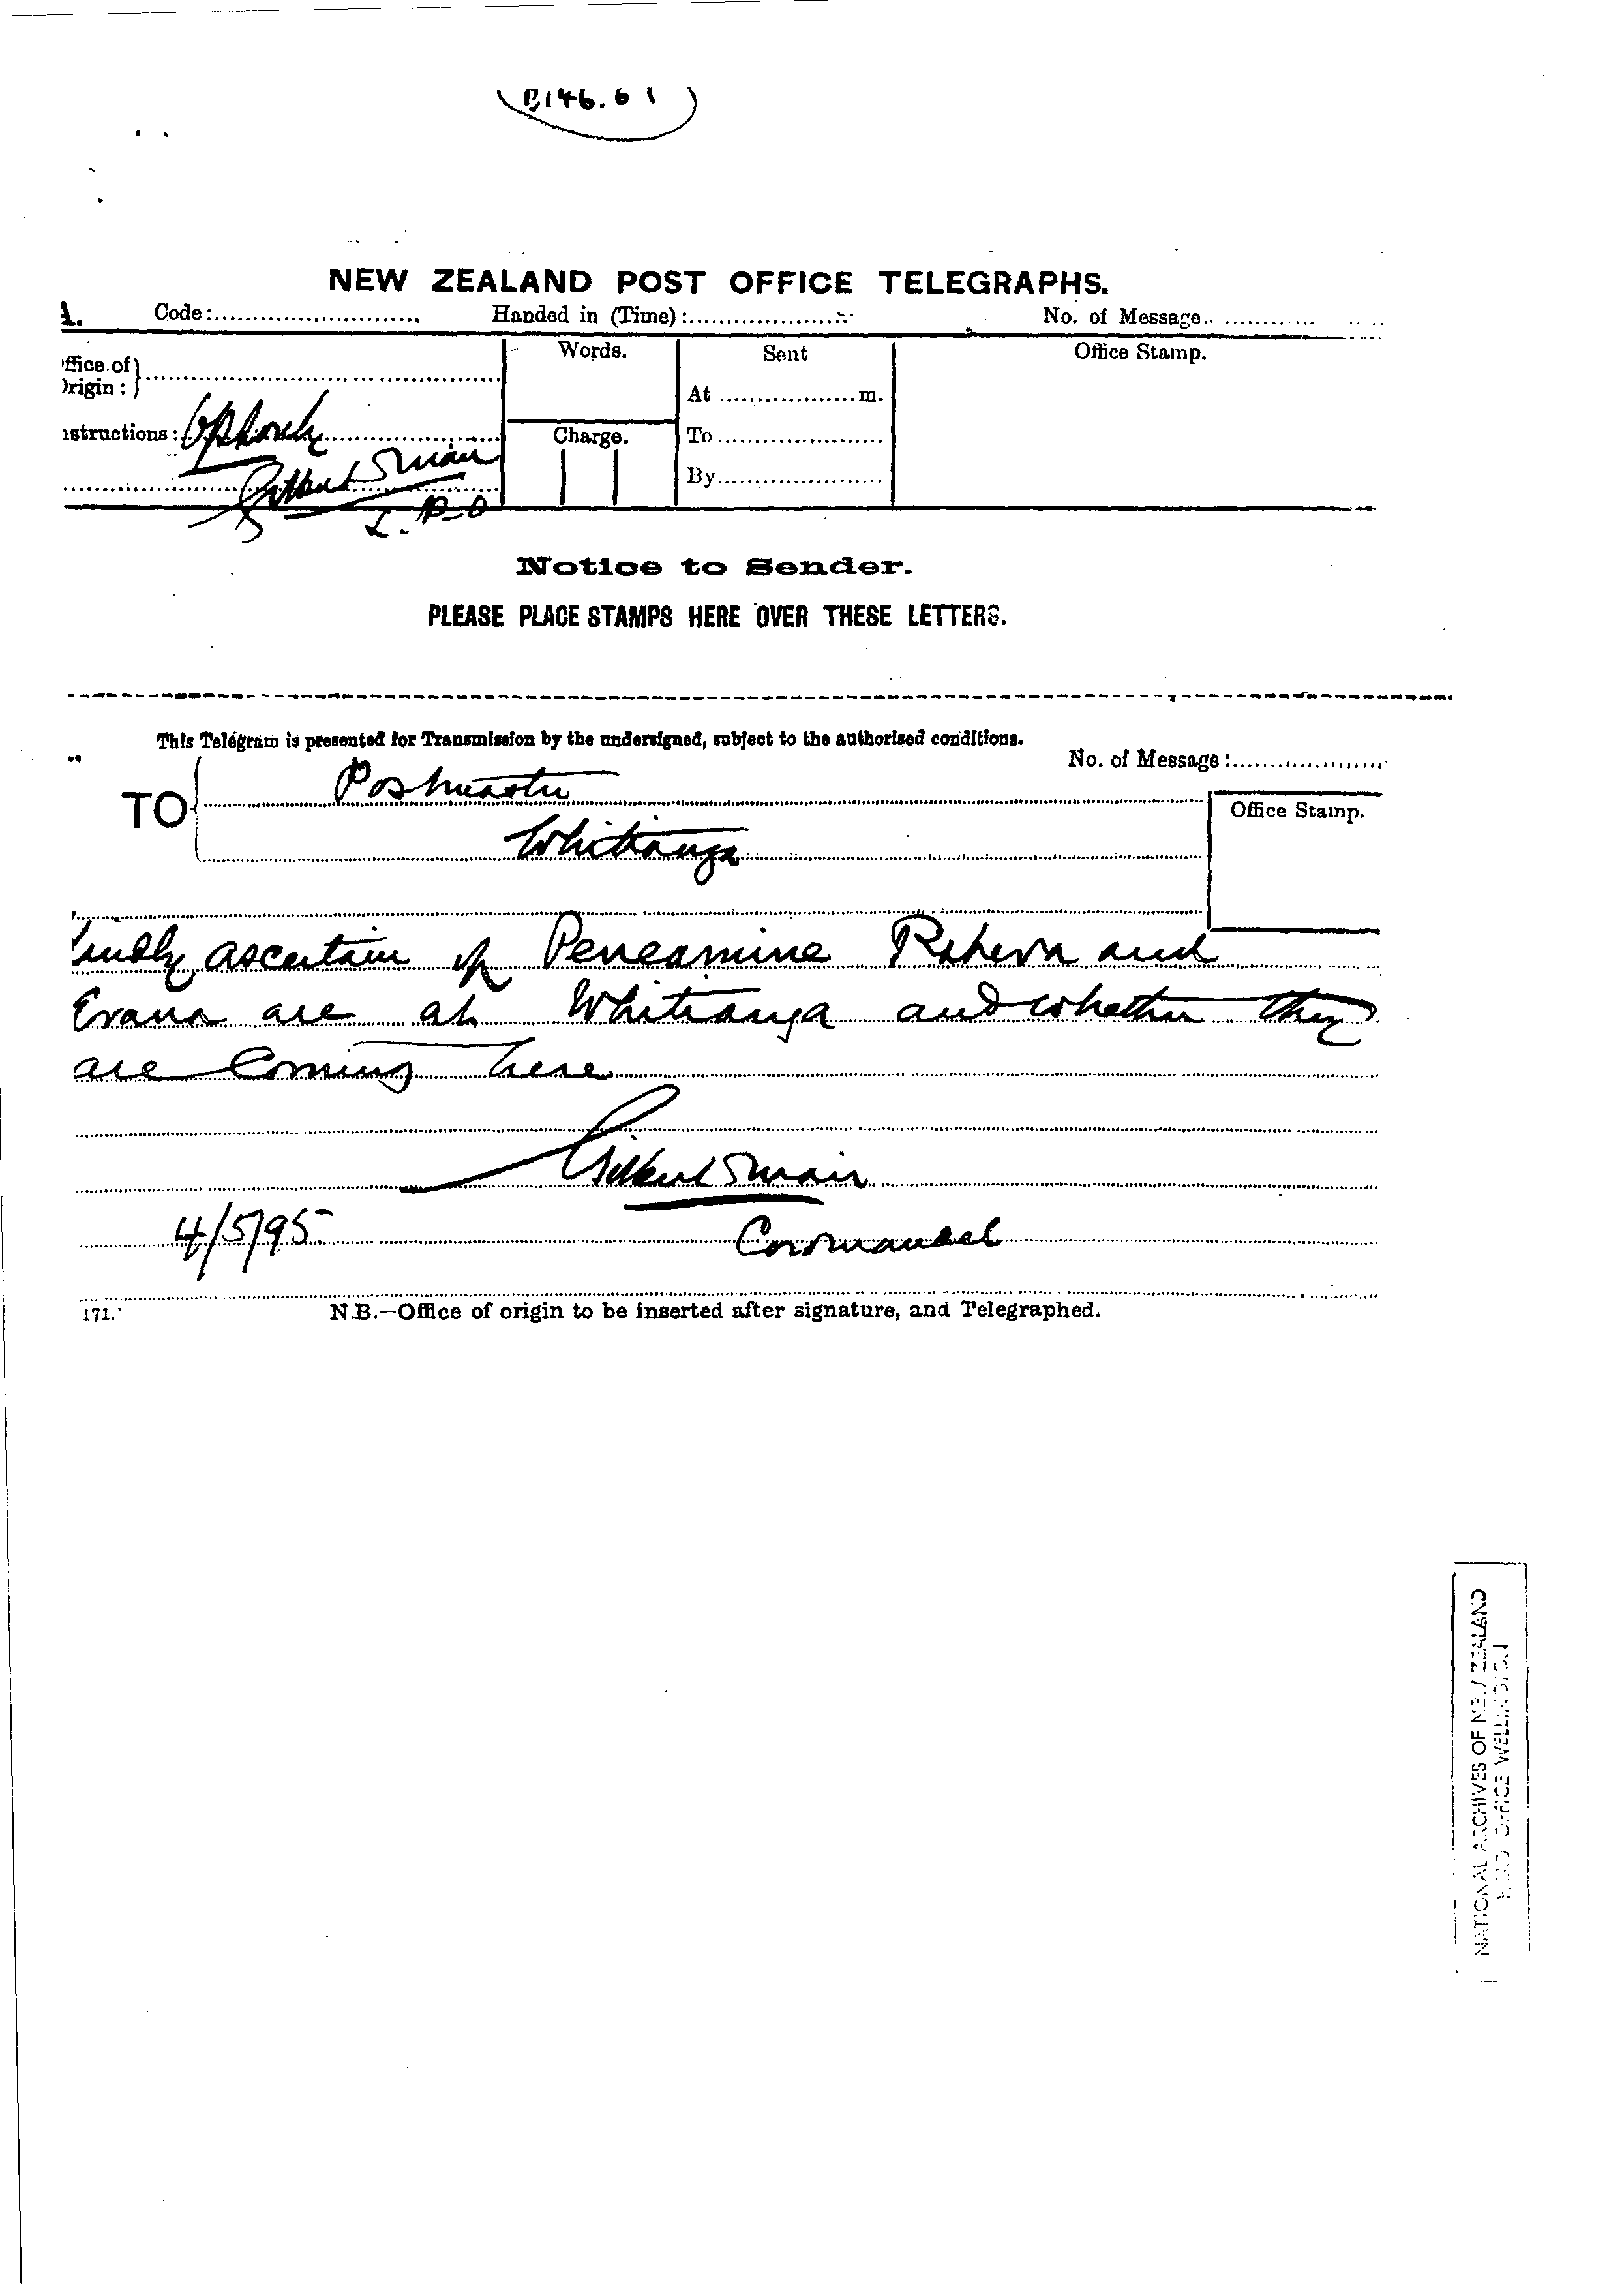 B146.61
NEW ZEALAND POST OFFICE TELEGRAPHS.
A. Code: Handed in (Time): No. of Message
Office of Origin: Words. Sent Office Stamp.
At m.
Instructions: Charge. To
Gilbert Mair By
Notice to Sender.
PLEASE PLACE STAMPS HERE OVER THESE LETTERS.
This Telegram is presented for Transmission by the undersigned, subject to the authorised conditions.
No. of Message:
TO Postmaster
Office Stamp.
Whitianga
Kindly ascertain if Peneamine and
Erana are at Whitianga and whether they
are Coming here
Gilbert Mair
4/5/95 Coromandel
171. N.B.—Office of origin to be inserted after signature, and Telegraphed.
NATIONAL ARCHIVES OF NEW ZEALAND
HEAD OFFICE WELLINGTON